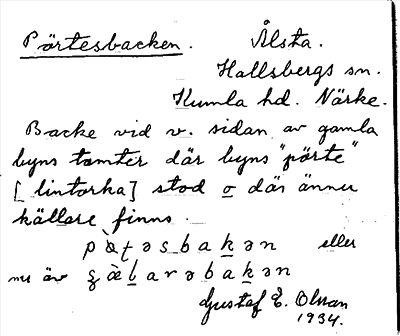 Pörtesbacken. Ålsta.
Hallsbergs sn.
Kumla hd. Närke.
Backe vid v. sidan av gamla
byns tomter där byns "pörte"
[lintorka] stod o där ännu
källare finns.
eller
nu är
Gustaf E. Olsson
1934.